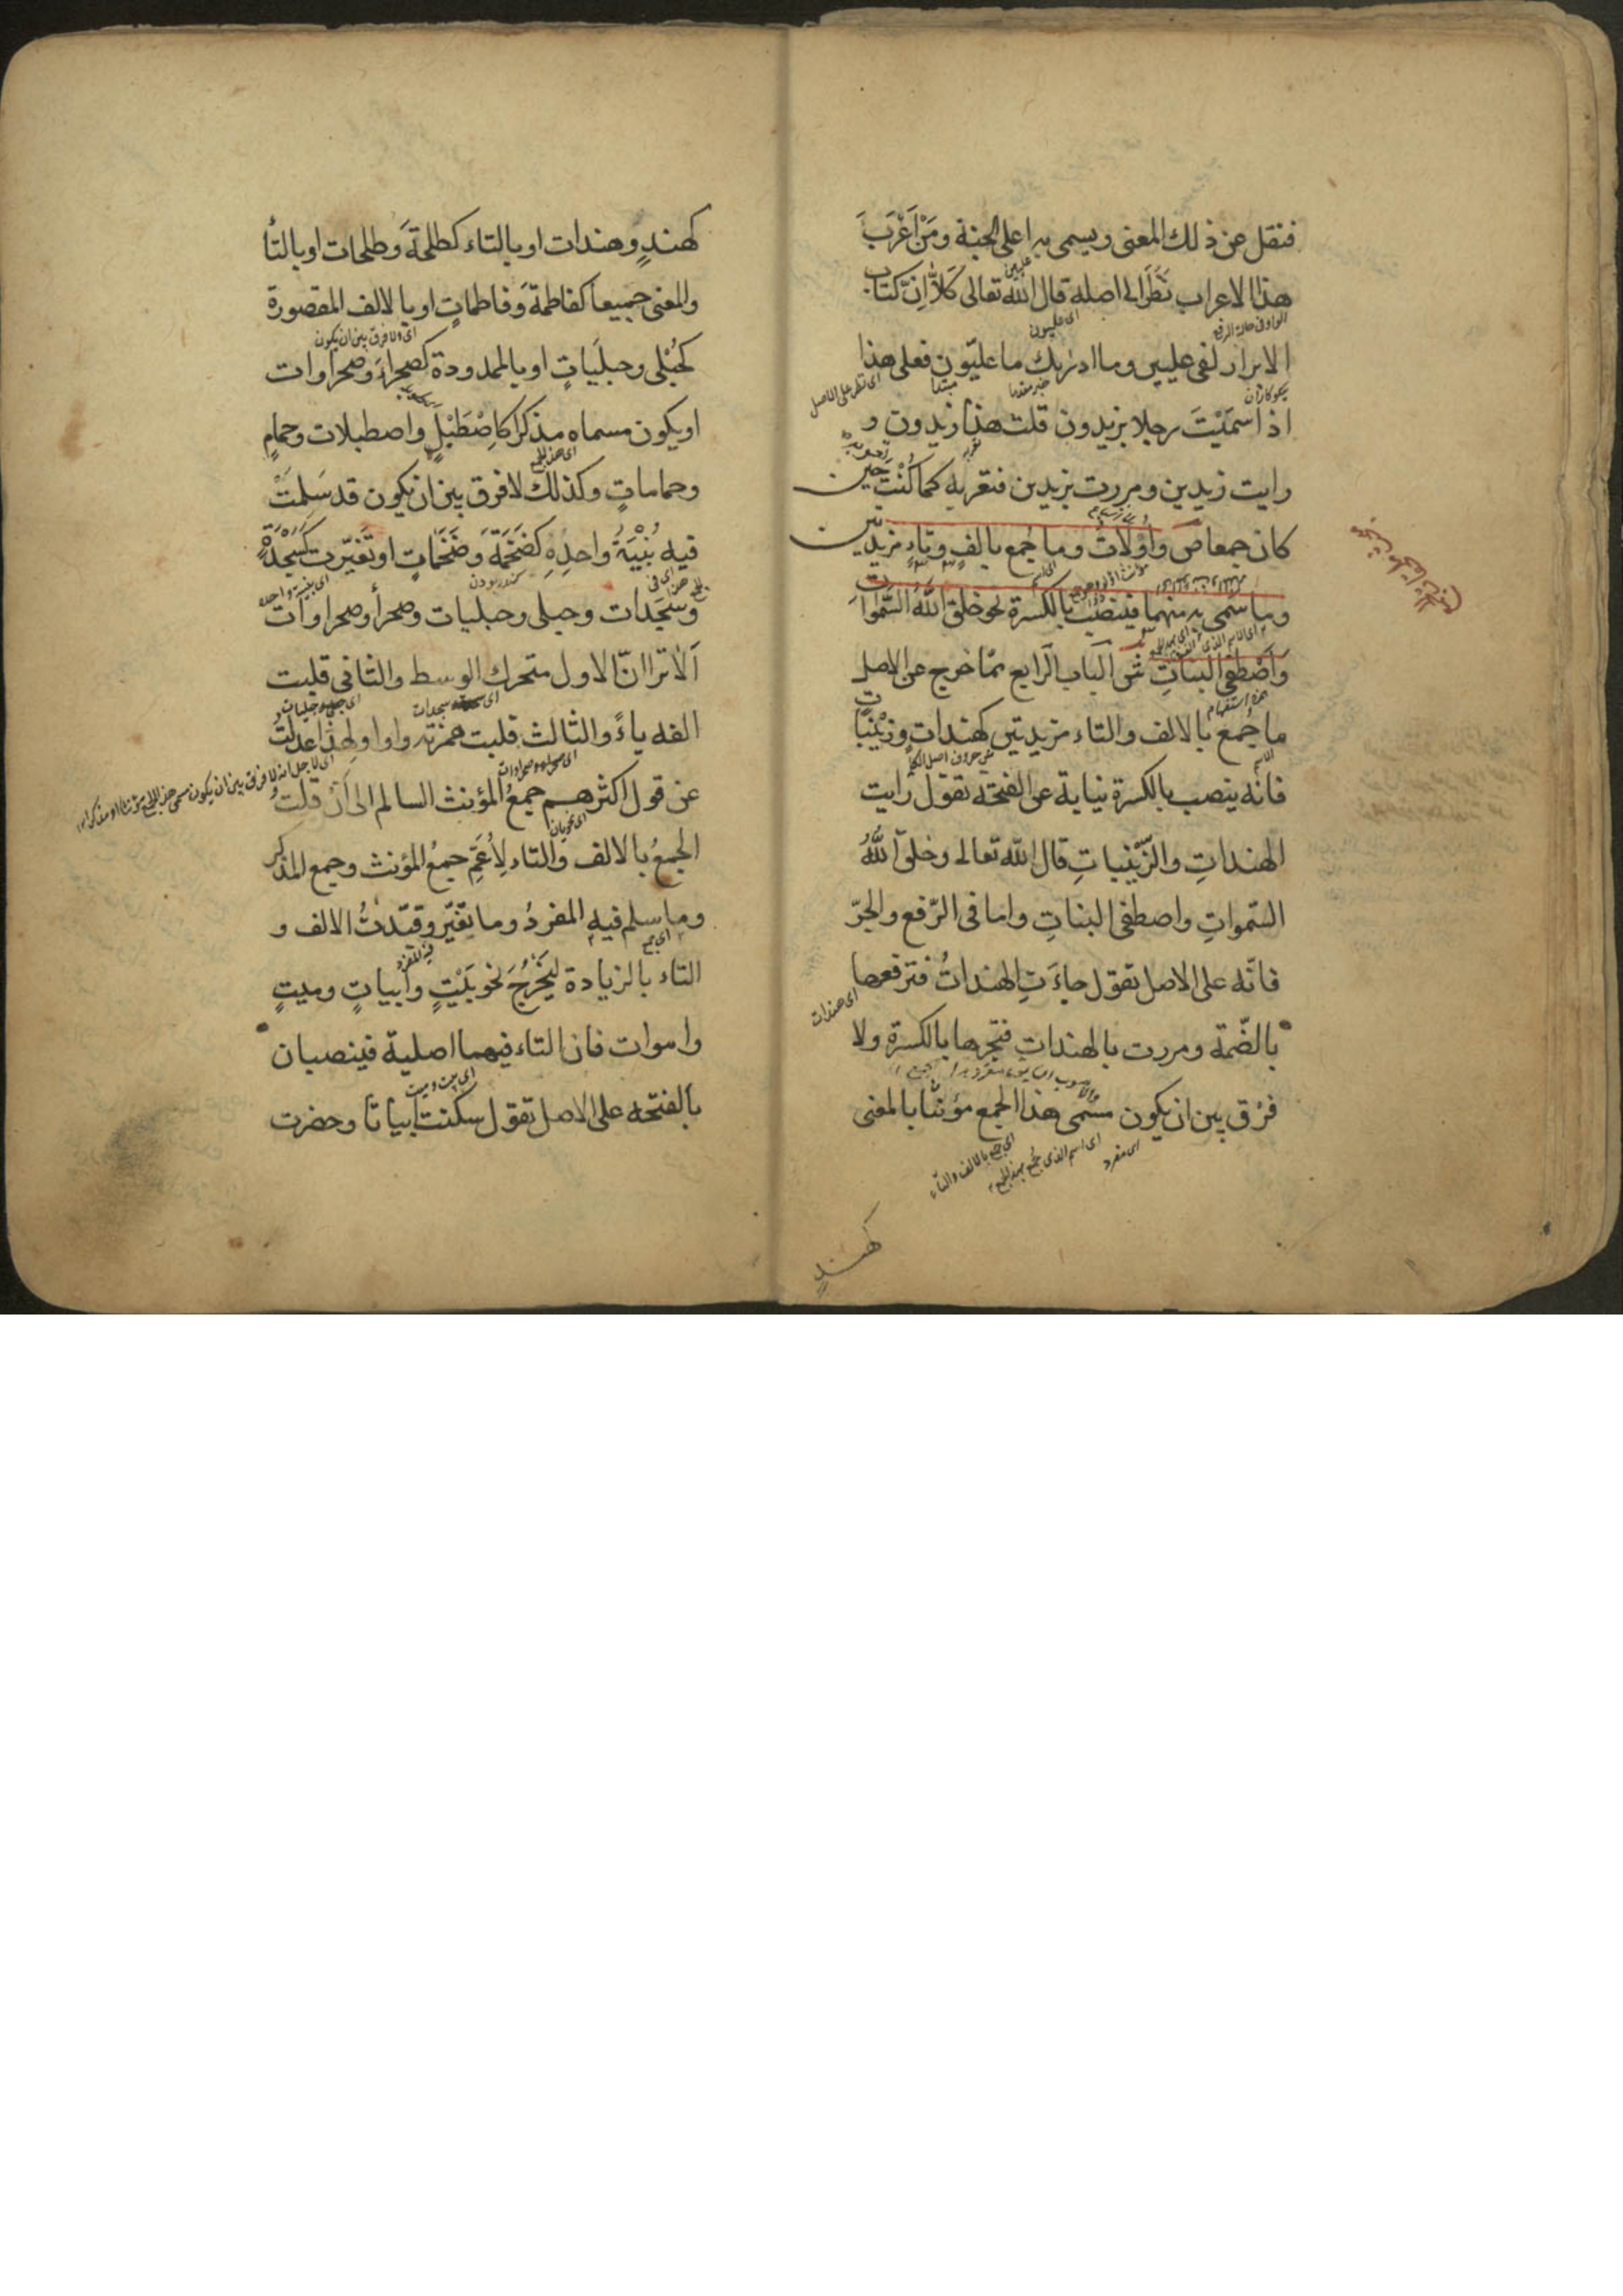 فنقل عن ذلك المعنى ويسمى به اعلى الجنة ومَنْ اَعْرَبَ
هذا الاعراب نَظَرَ الى اصله قال الله تعالى كَلاَّ اِنَّ كتاب
الابرار لفى عليين وما ادريك ما عليّون فعلى هذا
اذا سَمَّيْتَ رجلا بزيدون قلت هذا زيدون و
رايت زيدين ومررت بزيدين فتعربه كما كُنْتَ حين
كان جمعا ص وَاُوْلاَتُ وما جُمع بالفٍ وتاءٍ مزيدتين
وما سُمّى به منهما فينصب بالكسرة نحو خلق اللّهُ السَّمواتِ
وَاَصْطَفى البناتِ ش الباب الرّابع ممّا خرج عن الاصل
ما جُمع بالالف والتاء مزيدتين كهندات وزَيْنَباتٍ
فانه ينصب بالكسرة نيابة عن الفتحة تقول رايت
الهنداتِ والزَّيْنباتِ قال اللّه تعالى وخلق اللّهُ
السّمواتِ واصطفى البناتِ واما فى الرّفع والجرّ
فانّه على الاصل تقول جاءَتِ الهنداتُ فترفعها
بالضّمة ومررت بالهنداتِ فتجرها بالكسرة ولا
فرْق بين ان يكون مسمى هذا الجمع مؤنثا بالمعنى
اى مفرد
اى اسم الذى جُمع بهذا الجمع
اى جمع بالالف والتّاء
كهندٍ
كهندٍ وهندات او بالتاء كطلحةَ وطلحات او بالتأ
والمعنى جميعاً كفاطمةَ وفاطماتٍ او بالالف المقصورة
اى ولا فرق بين ان يكون
كحُبْلى وحبلَياتٍ او بالممدودة كصحراءَ وصحراوات
او يكون مسماه مذكرا كاِصْطَبْلٍ واصطبلات وحمامٍ
اى هذا الجمع
وحماماتٍ وكذلك لا فرق بين ان يكون قد سَلِمَتْ
فيه بُنْيَةُ واحِدِهِ كضَخْمَةٍ وَضَخْماتٍ او تَغيّرت كَسَجْدَةٍ
وسَجَدات وحبلى وحبليات وصحرأ وصحراوات
اَلاَ ترا انّ الاول متحرك الوسط والثانى قلبت
الفه ياءً والثالث قلبت همزته واوا ولهذا عدلتُ
اى صحراء وصحراوات
عن قول اكثرهم جمعُ المؤنث السالم الى اَنْ قلتُ
اى لاجل انه لا فرق بين ان يكون مسمى هذا الجمع مؤنثا او مذكرا
الجمعُ بالالف والتاء لِاُعَمِّ جمعُ المؤنث وجمع المذكر
وما سلم فيه المفردُ وما تغيّر وقيّدتُ الالف و
التاء بالزيادة لِيَخْرُجَ نحو بَيْتٍ وأبياتٍ وميتٍ
واموات فان التاء فيهما اصلية فينصبان
اى بيت وميت
بالفتحه على الاصل تقول سكنت ابياتاً وحضرت